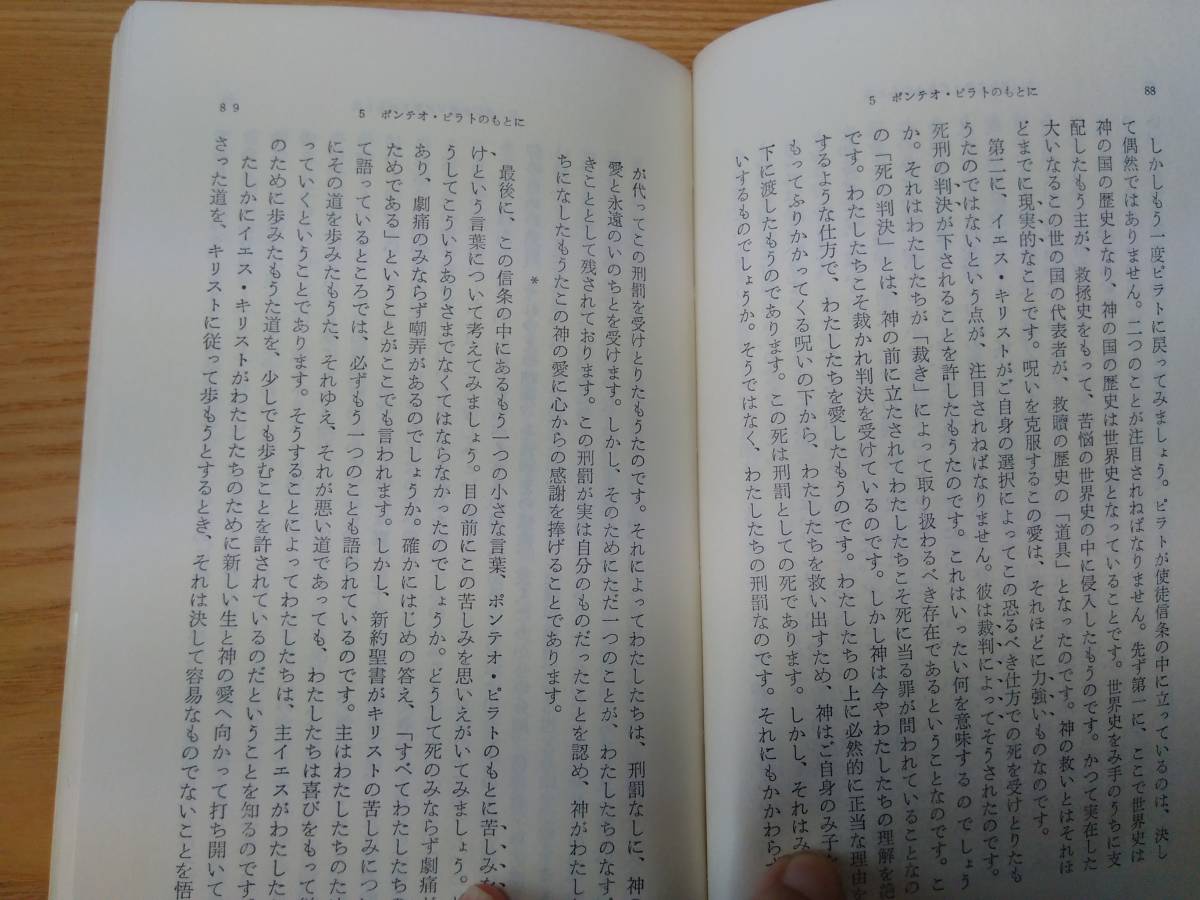 88
5 ポンテオ・ピラトのもとに
しかしもう一度ピラトに戻ってみましょう。ピラトが使徒信条の中に立っているのは、決し
て偶然ではありません。二つのことが注目されねばなりません。先ず第一に、ここで世界史は
神の国の歴史となり、神の国の歴史は世界史となっていることです。世界史をみ手のうちに支
配したもう主が、救拯史をもって、苦悩の世界史の中に侵入したもうのです。かつて実在した
大いなるこの世の国の代表者が、救贖の歴史の「道具」となったのです。神の救いとはそれほ
どまでに現実的なことです。呪いを克服するこの愛は、それほどに力強いものなのです。
第二に、イエス・キリストがご自身の選択によってこの恐るべき仕方での死を受けとりたも
うたのではないという点が、注目されねばなりません。彼は裁判によってそうされたのです。
死刑の判決が下されることを許したもうたのです。これはいったい何を意味するのでしょう
か。それはわたしたちが「裁き」によって取り扱わるべき存在であるということなのです。こ
の「死の判決」とは、神の前に立たされてわたしたちこそ死に当る罪が問われていることなの
です。わたしたちこそ裁かれ判決を受けているのです。しかし神は今やわたしたちの理解を絶
するような仕方で、わたしたちを愛したもうのです。わたしたちの上に必然的に正当な理由を
もってふりかかってくる呪いの下から、わたしたちを救い出すため、神はご自身のみ子を
下に渡したもうのであります。この死は刑罰としての死であります。しかし、それはみ
いするものでしょうか。そうではなく、わたしたちの刑罰なのです。それにもかかわらず
89
5 ポンテオ・ピラトのもとに
が代ってこの刑罰を受けとりたもうたのです。それによってわたしたちは、刑罰なしに、神の
愛と永遠のいのちとを受けます。しかし、そのためにただ一つのことが、わたしたちのなすべ
きこととして残されております。この刑罰が実は自分のものだったことを認め、神がわたした
ちになしたもうたこの神の愛に心からの感謝を捧げることであります。
*
最後に、この信条の中にあるもう一つの小さな言葉、ポンテオ・ピラトのもとに苦しみを
けという言葉について考えてみましょう。目の前にこの苦しみを思いえがいてみましょう。
うしてこういうありさまでなくてはならなかったのでしょうか。どうして死のみならず劇痛が
あり、劇痛のみならず嘲弄があるのでしょうか。確かにはじめの答え、「すべてわたしたち
ためである」ということがここでも言われます。しかし、新約聖書がキリストの苦しみについ
て語っているところでは、必ずもう一つのことも語られているのです。主はわたしたちのため
にその道を歩みたもうた、それゆえ、それが悪い道であっても、わたしたちは喜びをもって
っていくということであります。そうすることによってわたしたちは、主イエスがわたした
のために歩みたもうた道を、少しでも歩むことを許されているのだということを知るのです
たしかにイエス・キリストがわたしたちのために新しい生と神の愛へ向かって打ち開いて
さった道を、キリストに従って歩もうとするとき、それは決して容易なものでないことを悟